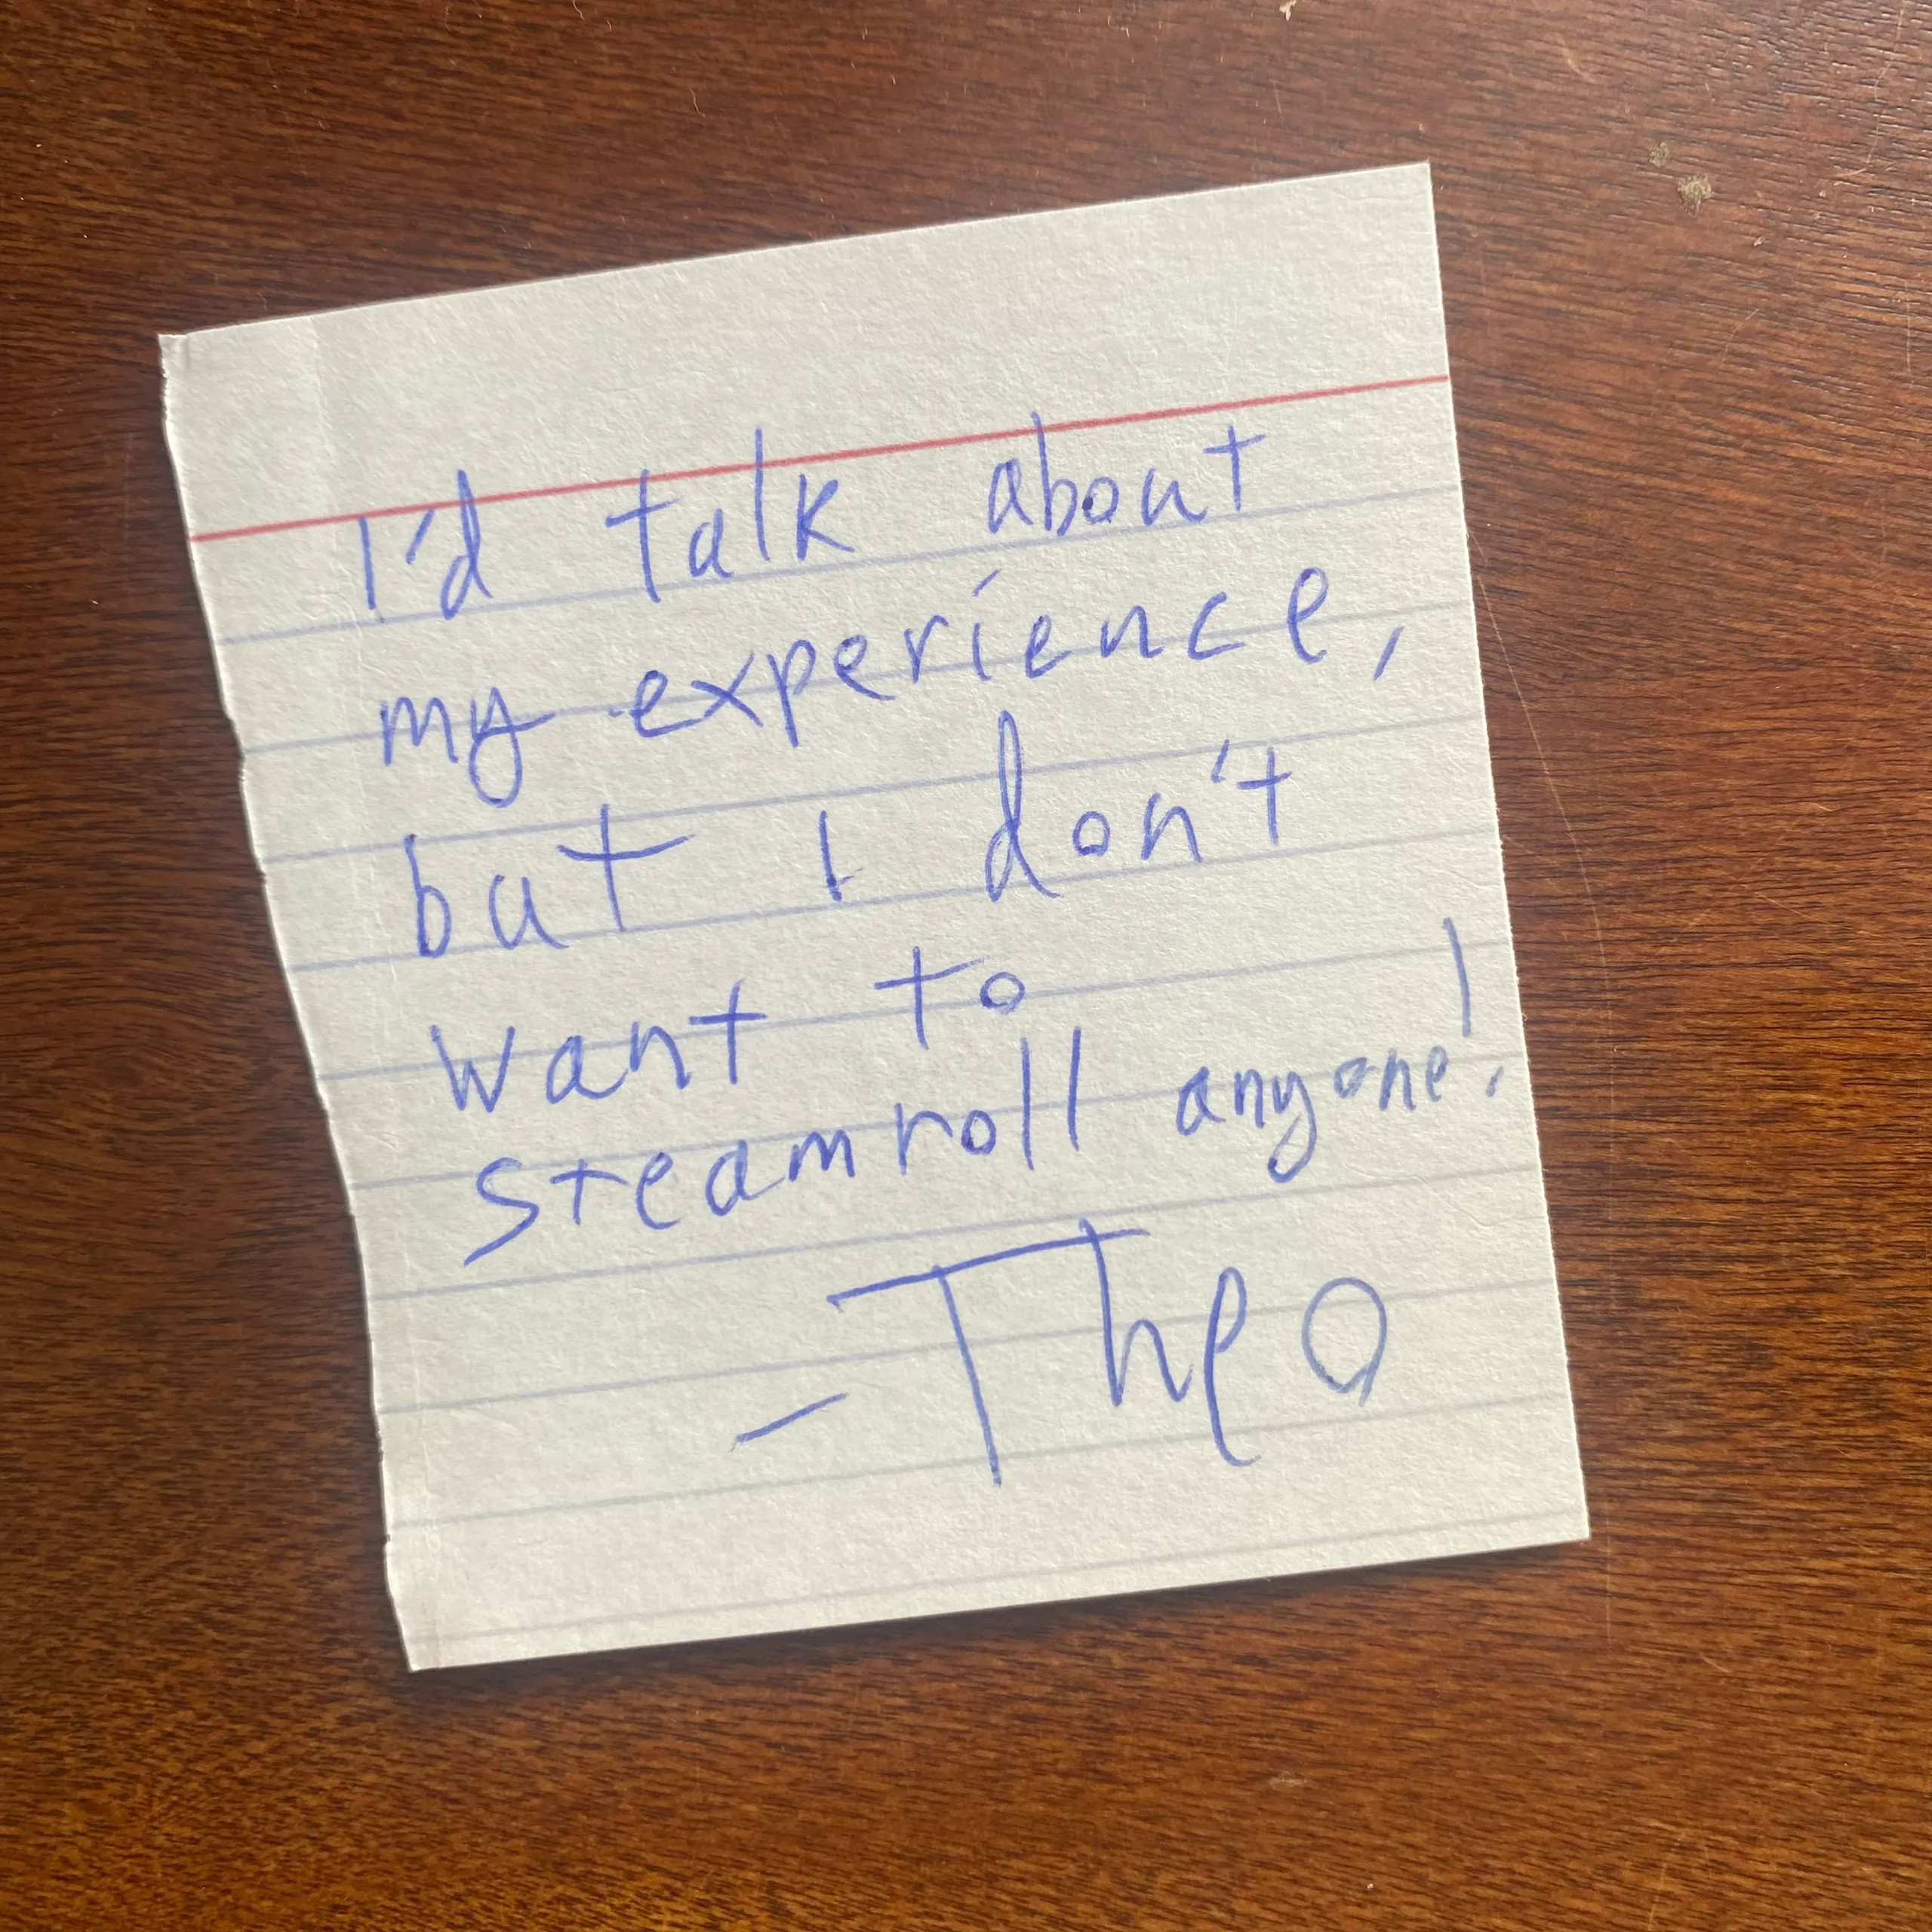 I'd talk about
my experience,
but I don't
want to
steamroll anyone!
- Theo